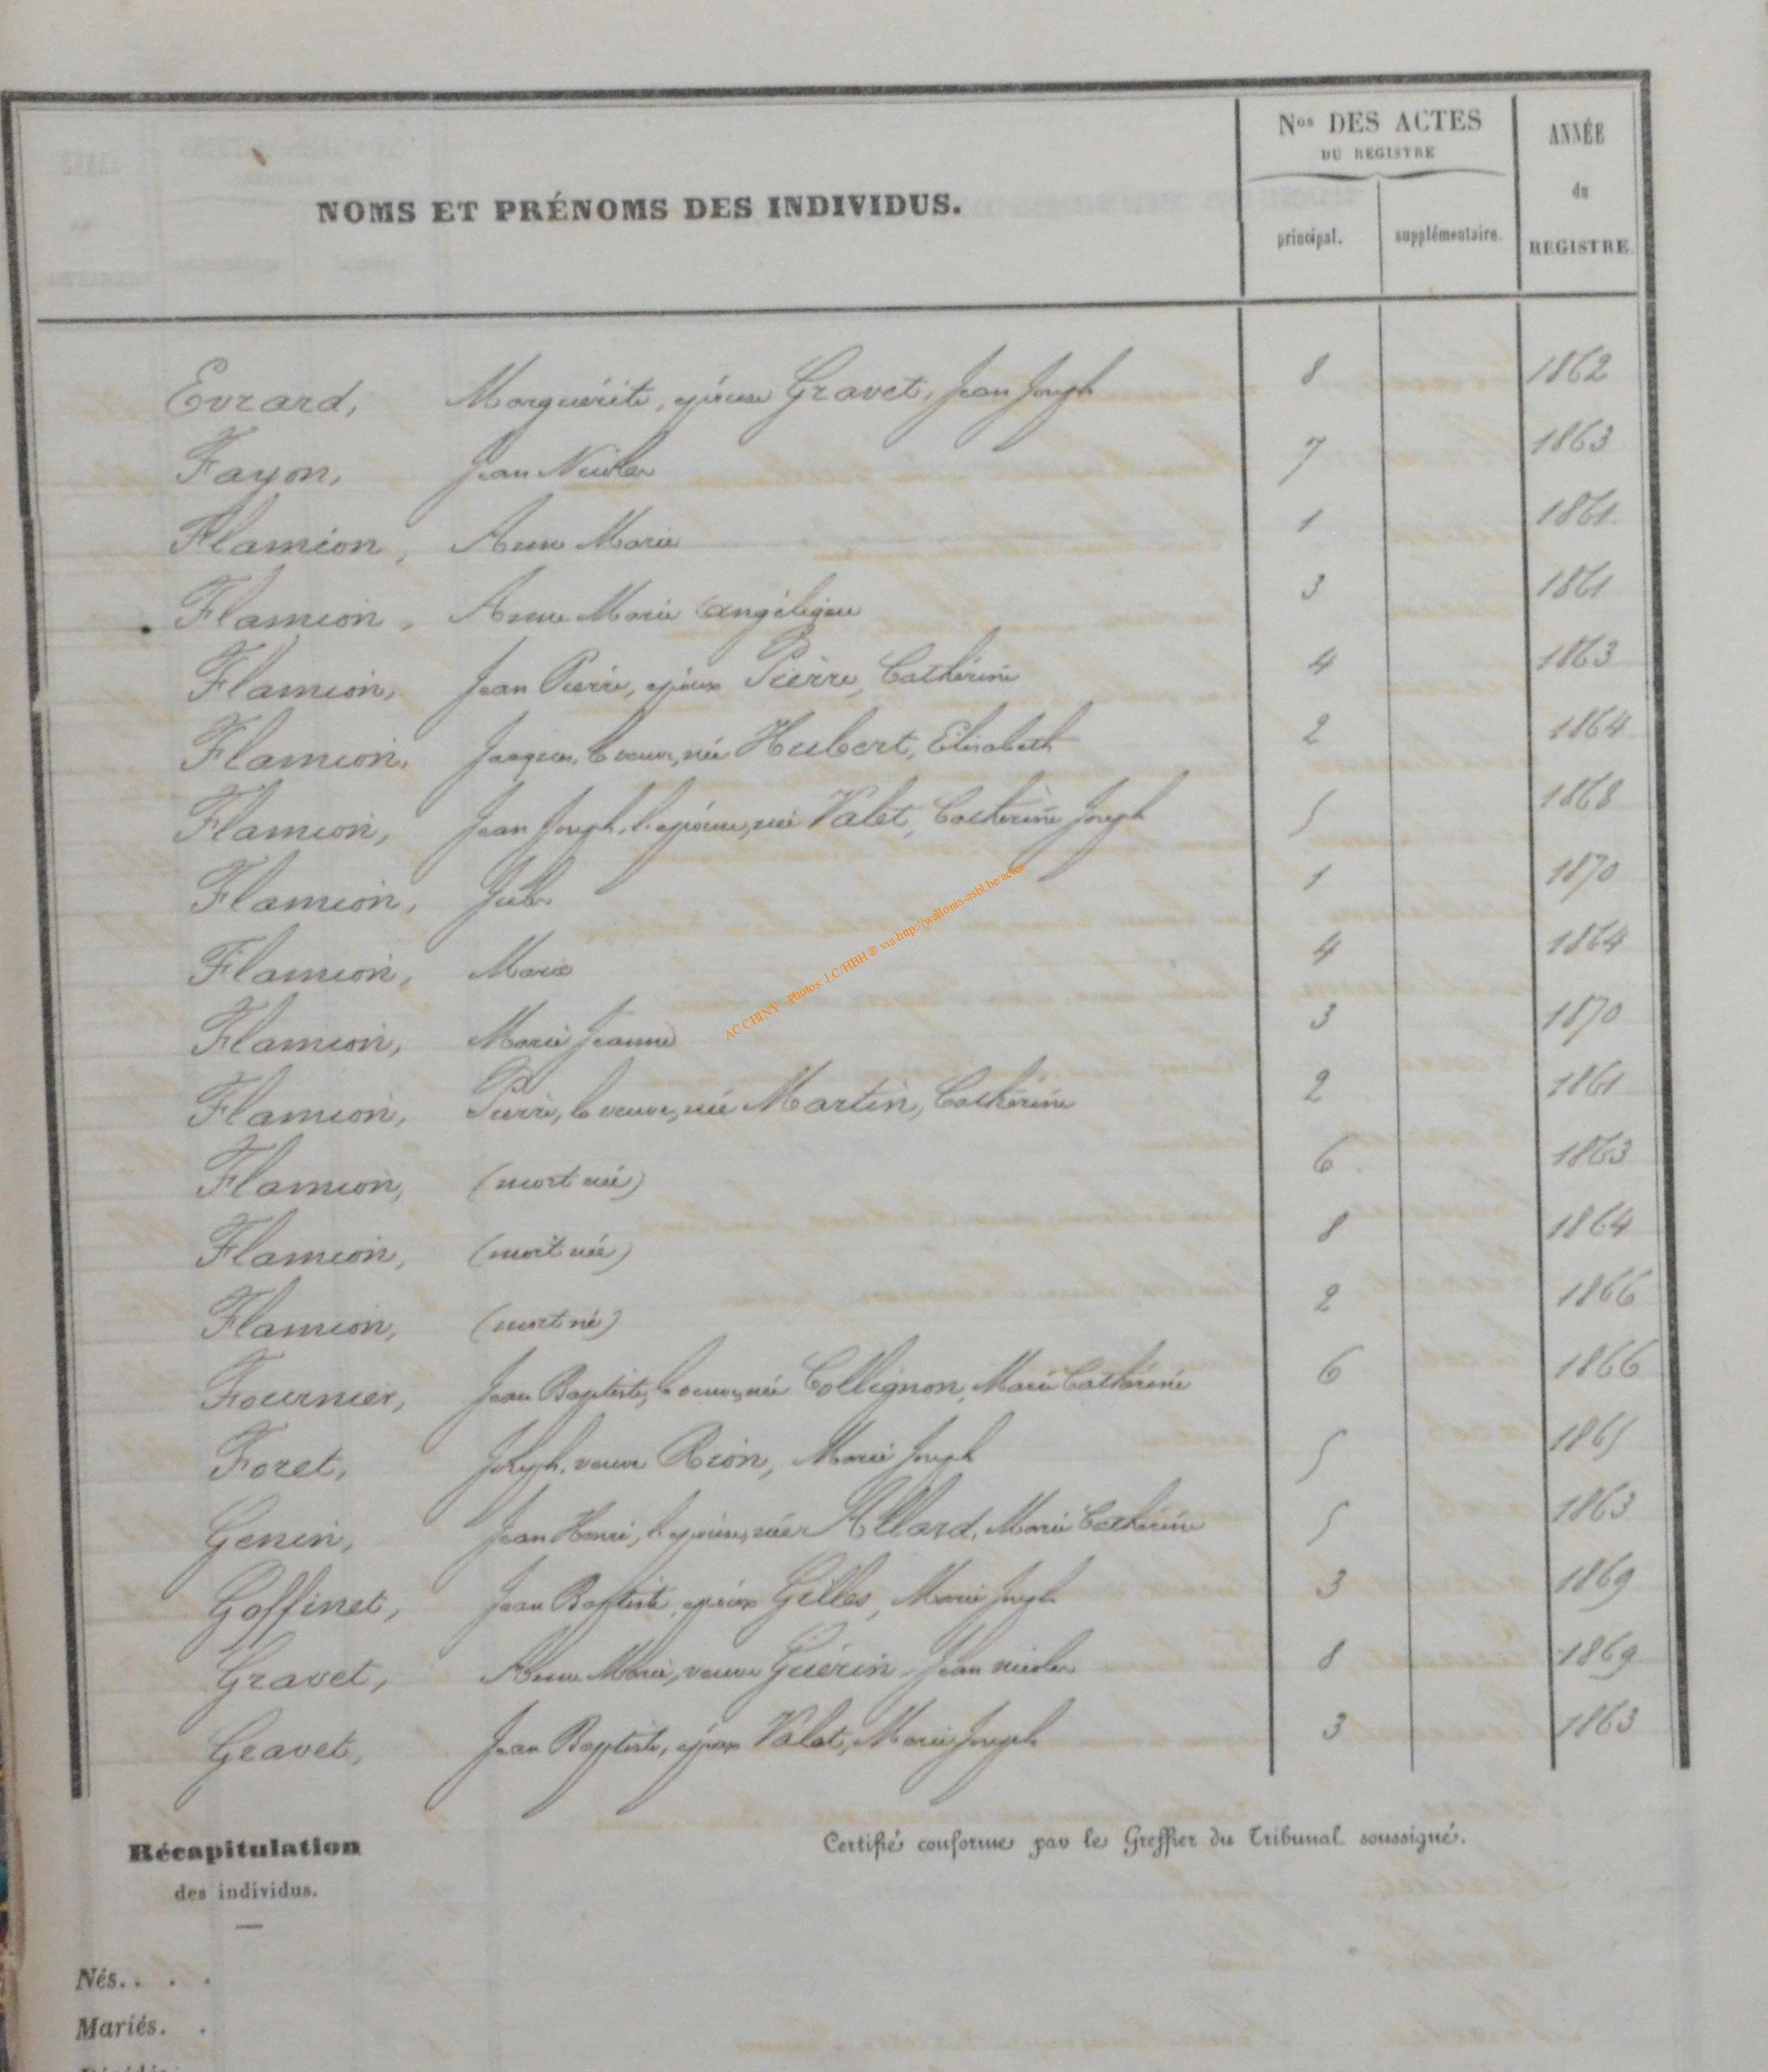 NOMS ET PRÉNOMS DES INDIVIDUS.
Nos DES ACTES
DU REGISTRE
principal.
supplémentaire.
ANNÉE
du
REGISTRE.
Evrard, Marguérite, épouse Gravet, Jean Joseph 8 1862
Fayon, Jean Nicolas 7 1863
Flamion, Anne Marie 1 1861
Flamion, Anne Marie Angélique 3 1861
Flamion, Jean Pierre, époux Pierre, Catherine 4 1863
Flamion, Jacques, la veuve, née Hubert, Elisabeth 2 1864
Flamion, Jean Joseph, l'épouse, née Valet, Catherine Joseph 5 1868
Flamion, Jules 1 1870
Flamion, Marie 4 1864
Flamion, Marie Jeanne 3 1870
Flamion, Pierre, la veuve, née Martin, Catherine 2 1861
Flamion, (mort née) 6 1863
Flamion, (mort née) 8 1864
Flamion, (mort né) 2 1866
Fournier, Jean Baptiste, la veuve, née Collignon, Marie Catherine 6 1866
Foret, Joseph, veuve Rion, Marie Joseph 5 1865
Genin, Jean Henri, l'épouse, née Allard, Marie Catherine 5 1863
Goffinet, Jean Baptiste, époux Gilles, Marie Joseph 3 1869
Gravet, Anne Marie, veuve Guérin, Jean nicolas 8 1869
Gravet, Jean Baptiste, époux Valet, Marie Joseph 3 1863
AC CHINY - Photos: J.C/HBH © via http://wallonia-asbl.be/actes
Récapitulation
des individus.
Certifié conforme par le Greffier du Tribunal soussigné.
Nés. . . .
Mariés. .